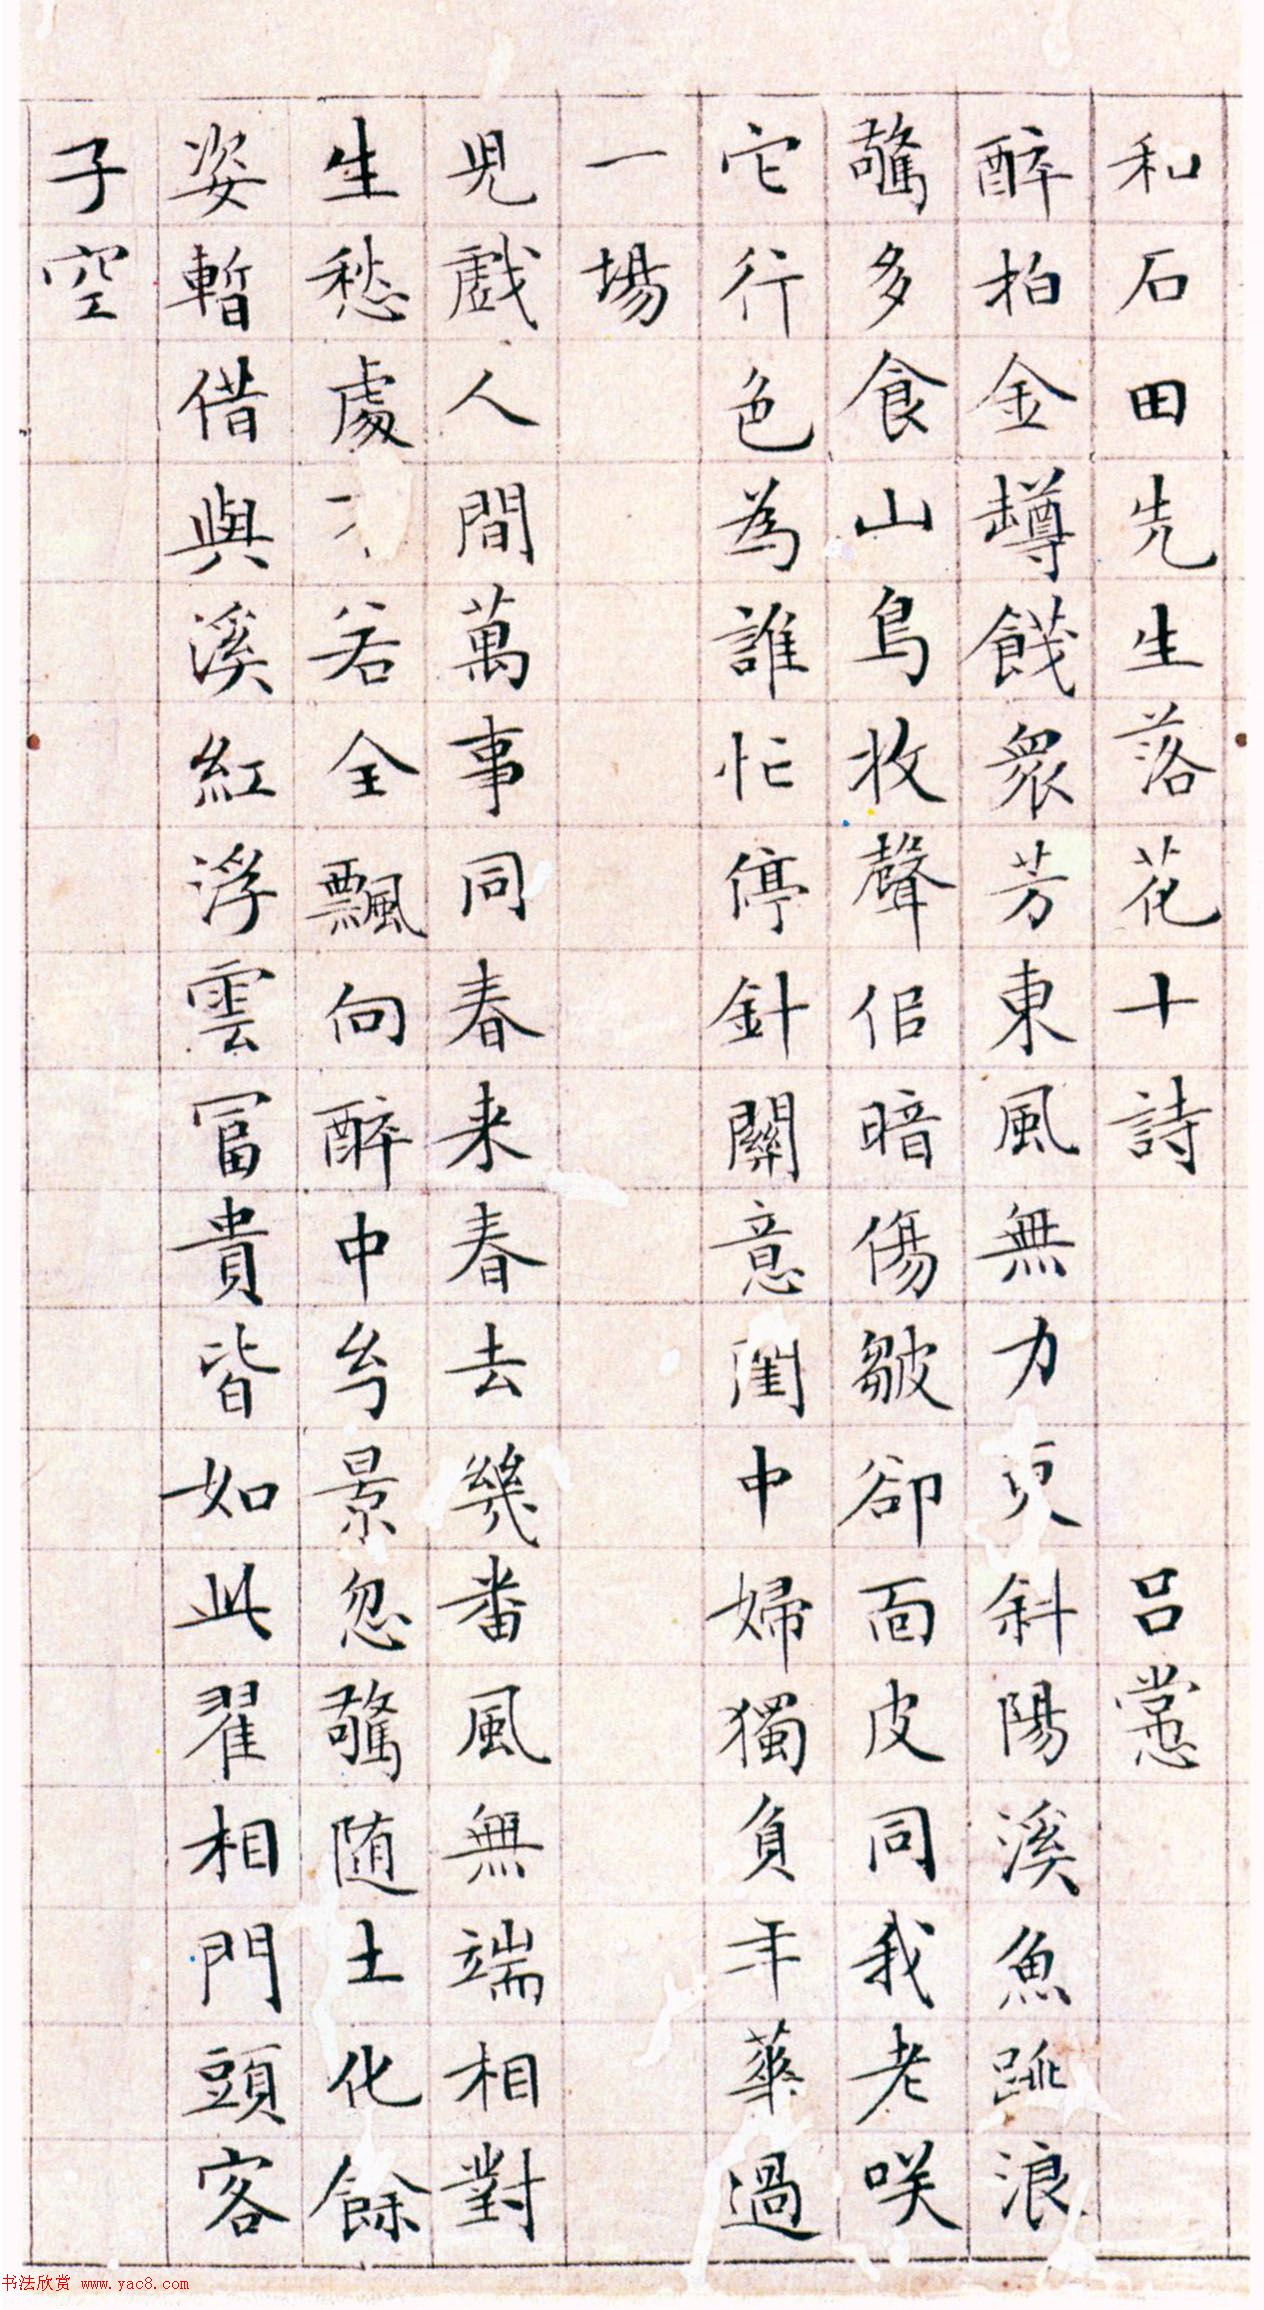 和石田先生落花十詩　呂㦂
醉拍金罇餞衆芳東風無力更斜陽溪魚跳浪
驚多食山鳥收聲佀暗傷皺卻面皮同我老咲
它行色為誰忙停針關意閨中婦獨負年華過
一場
兒戲人間萬事同春来春去幾番風無端相對
生愁處若全飄向醉中兮景忽驚随土化餘
姿暫借與溪紅浮雲冨貴皆如此翟相門頭客
子空
书法欣赏 www.yac8.com